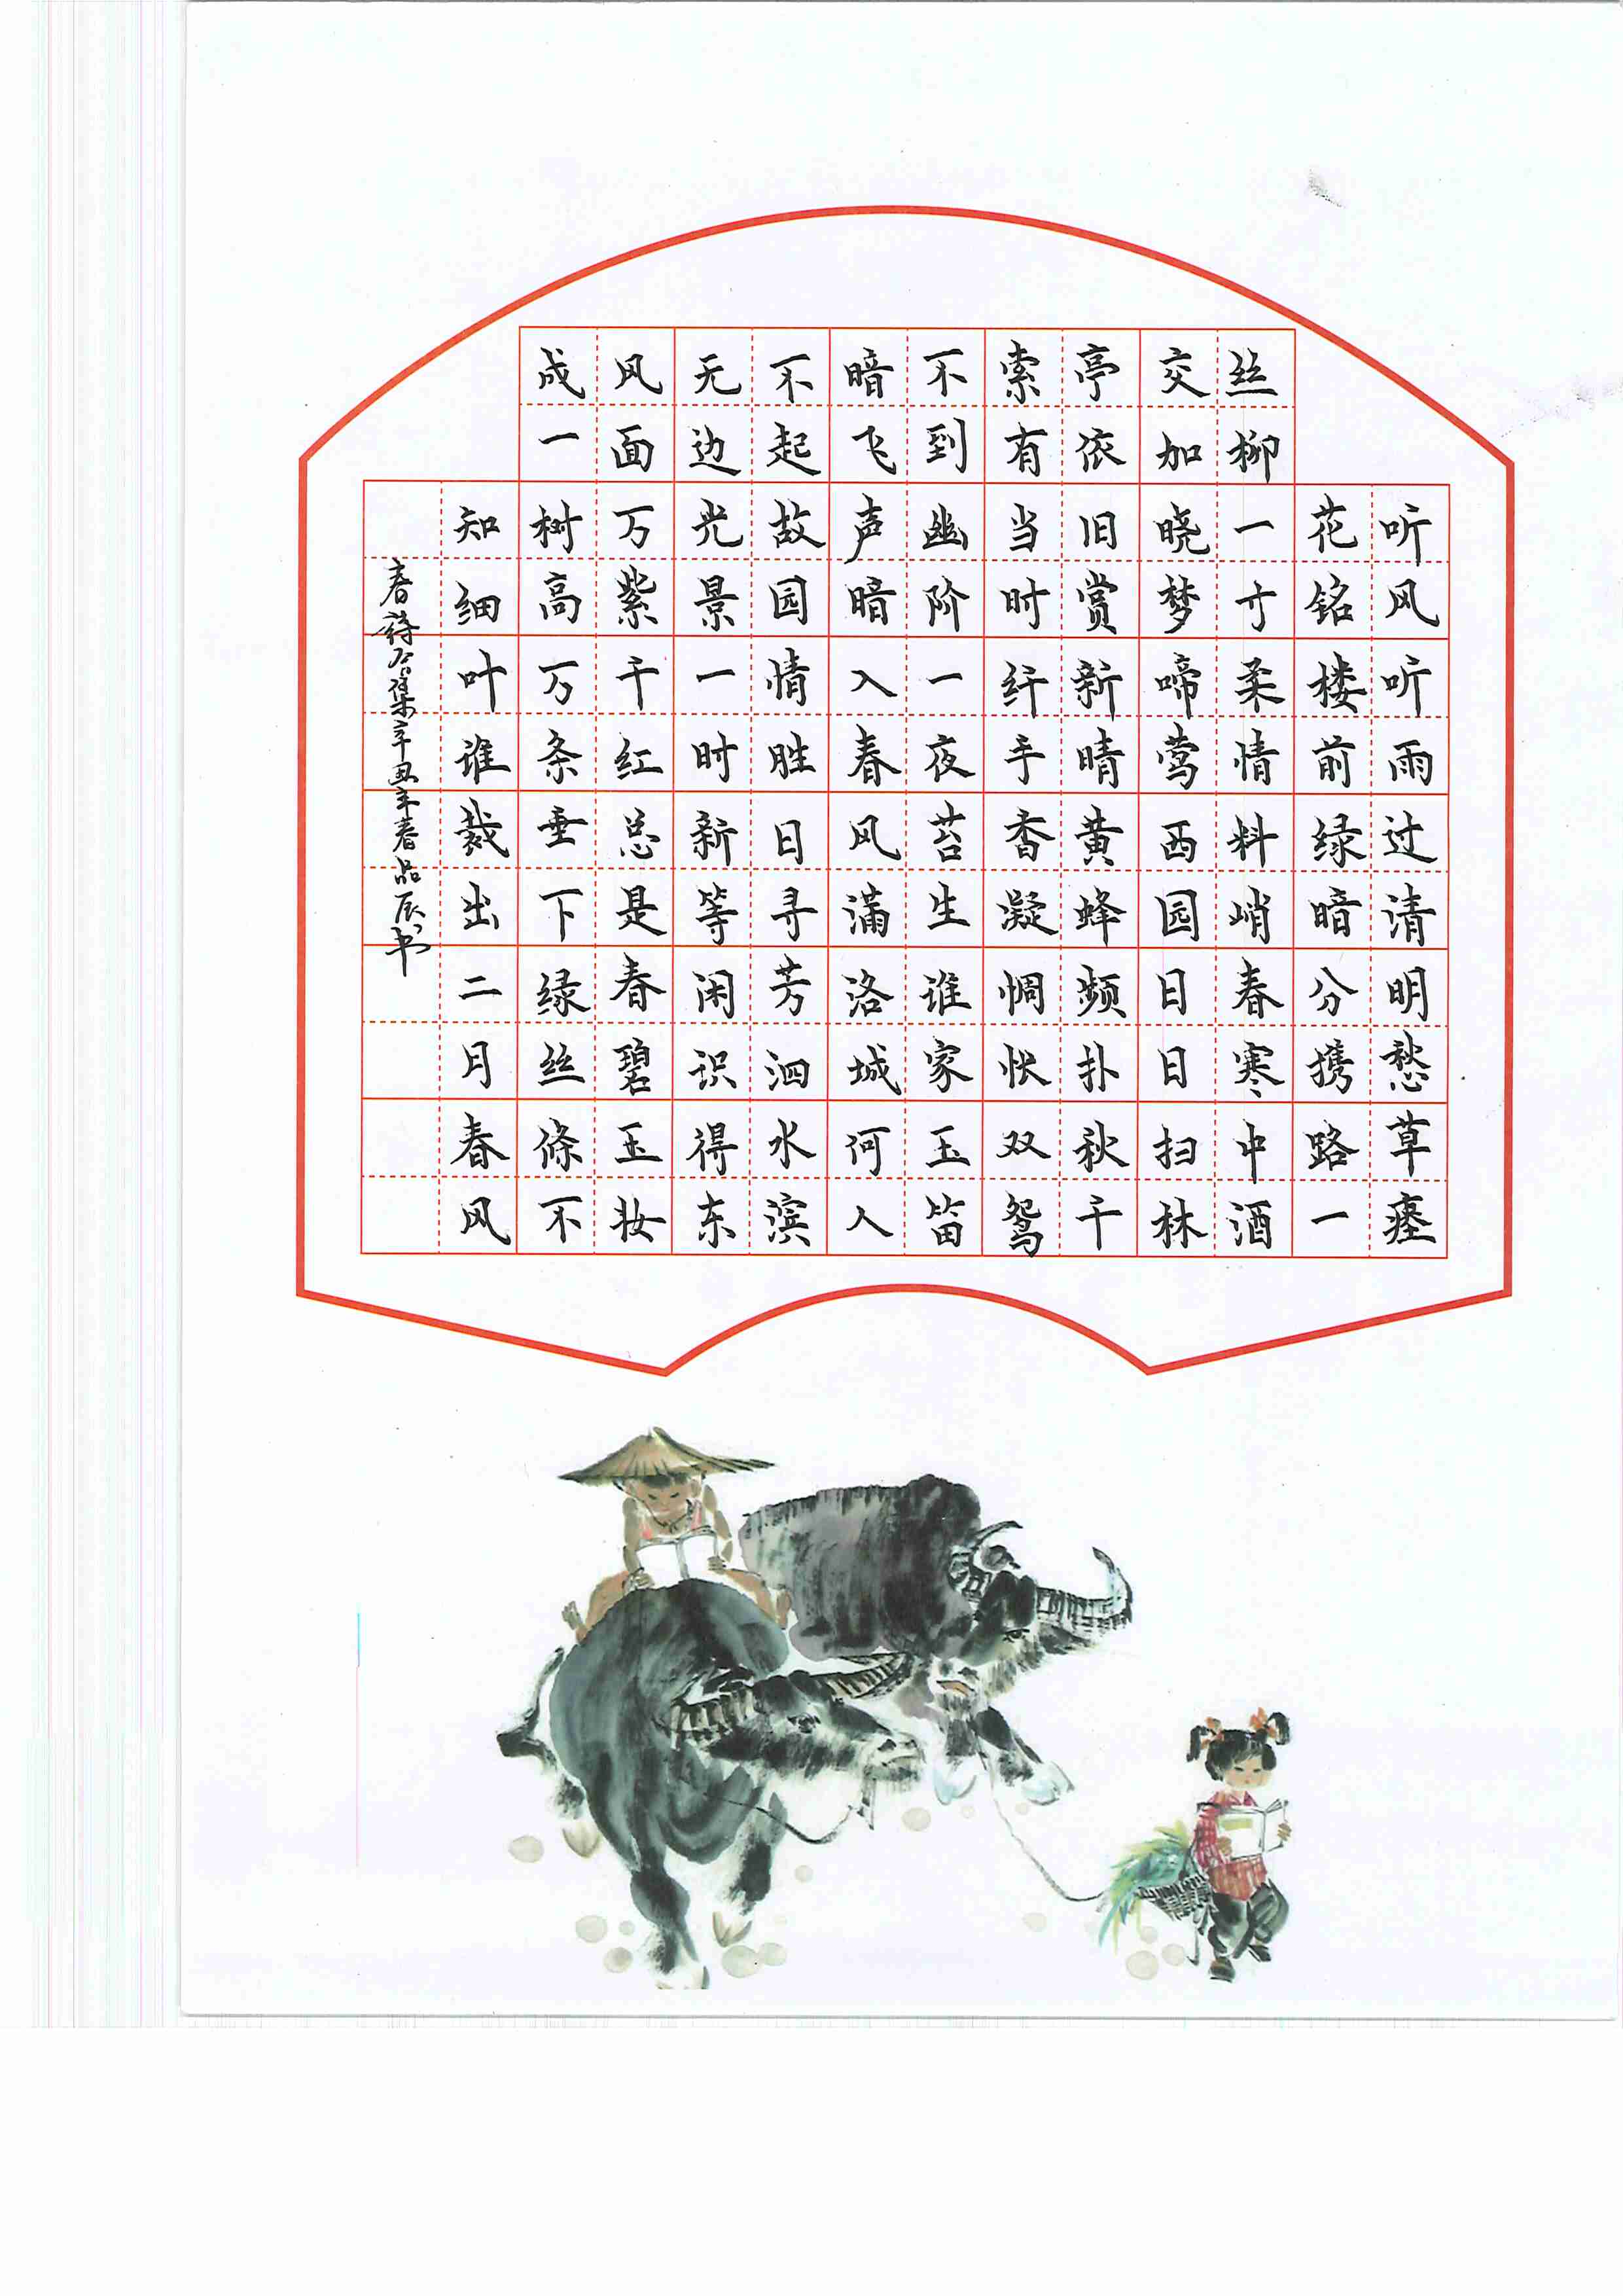 听风听雨过清明愁草瘗
花铭楼前绿暗分携路一
丝柳一寸柔情料峭春寒中酒
交加晓梦啼莺西园日日扫林
亭依旧赏新晴黄蜂频扑秋千
索有当时纤手香凝惆怅双鸳
不到幽阶一夜苔生谁家玉笛
暗飞声暗入春风满洛城何人
不起故园情胜日寻芳泗水滨
无边光景一时新等闲识得东
风面万紫千红总是春碧玉妆
成一树高万条垂下绿丝條不
知细叶谁裁出二月春风
春诗合集辛丑年春品辰书